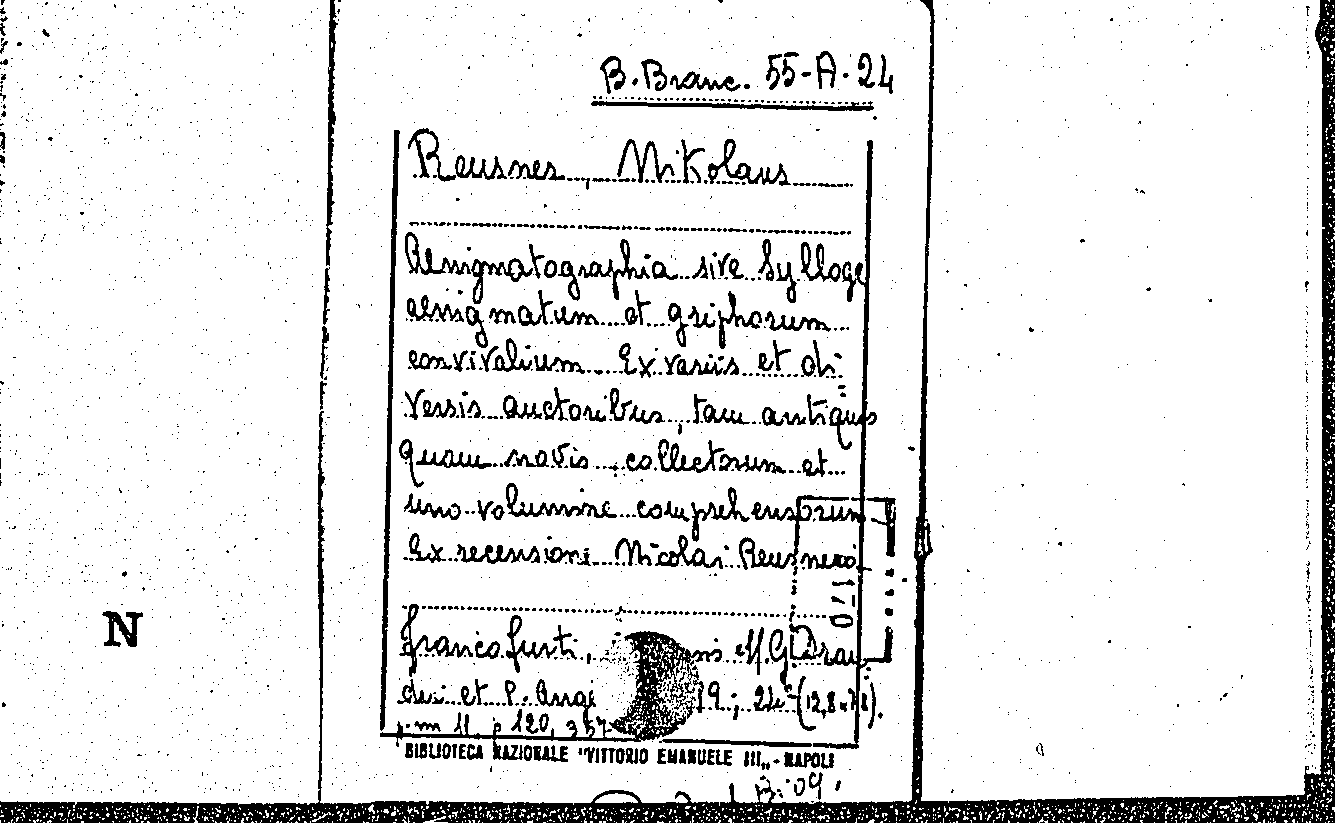 B. Branc. 55-A-24
Reusner, Nikolaus
Aenigmatographia sive Sylloge
aenigmatum et griphorum
convivalium Ex variis et di
versis auctoribus, tam antiquis
quam novis, collectorum et
uno volumine comprehensorum
Ex recensione Nicolai Reusneri
170
Francofurti, M. G. Drau
dii et P. Ang
19; 24° (12,8 x 7,8).
p. nn 11, p 120, 357
N
BIBLIOTECA NAZIONALE "VITTORIO EMANUELE III" - NAPOLI